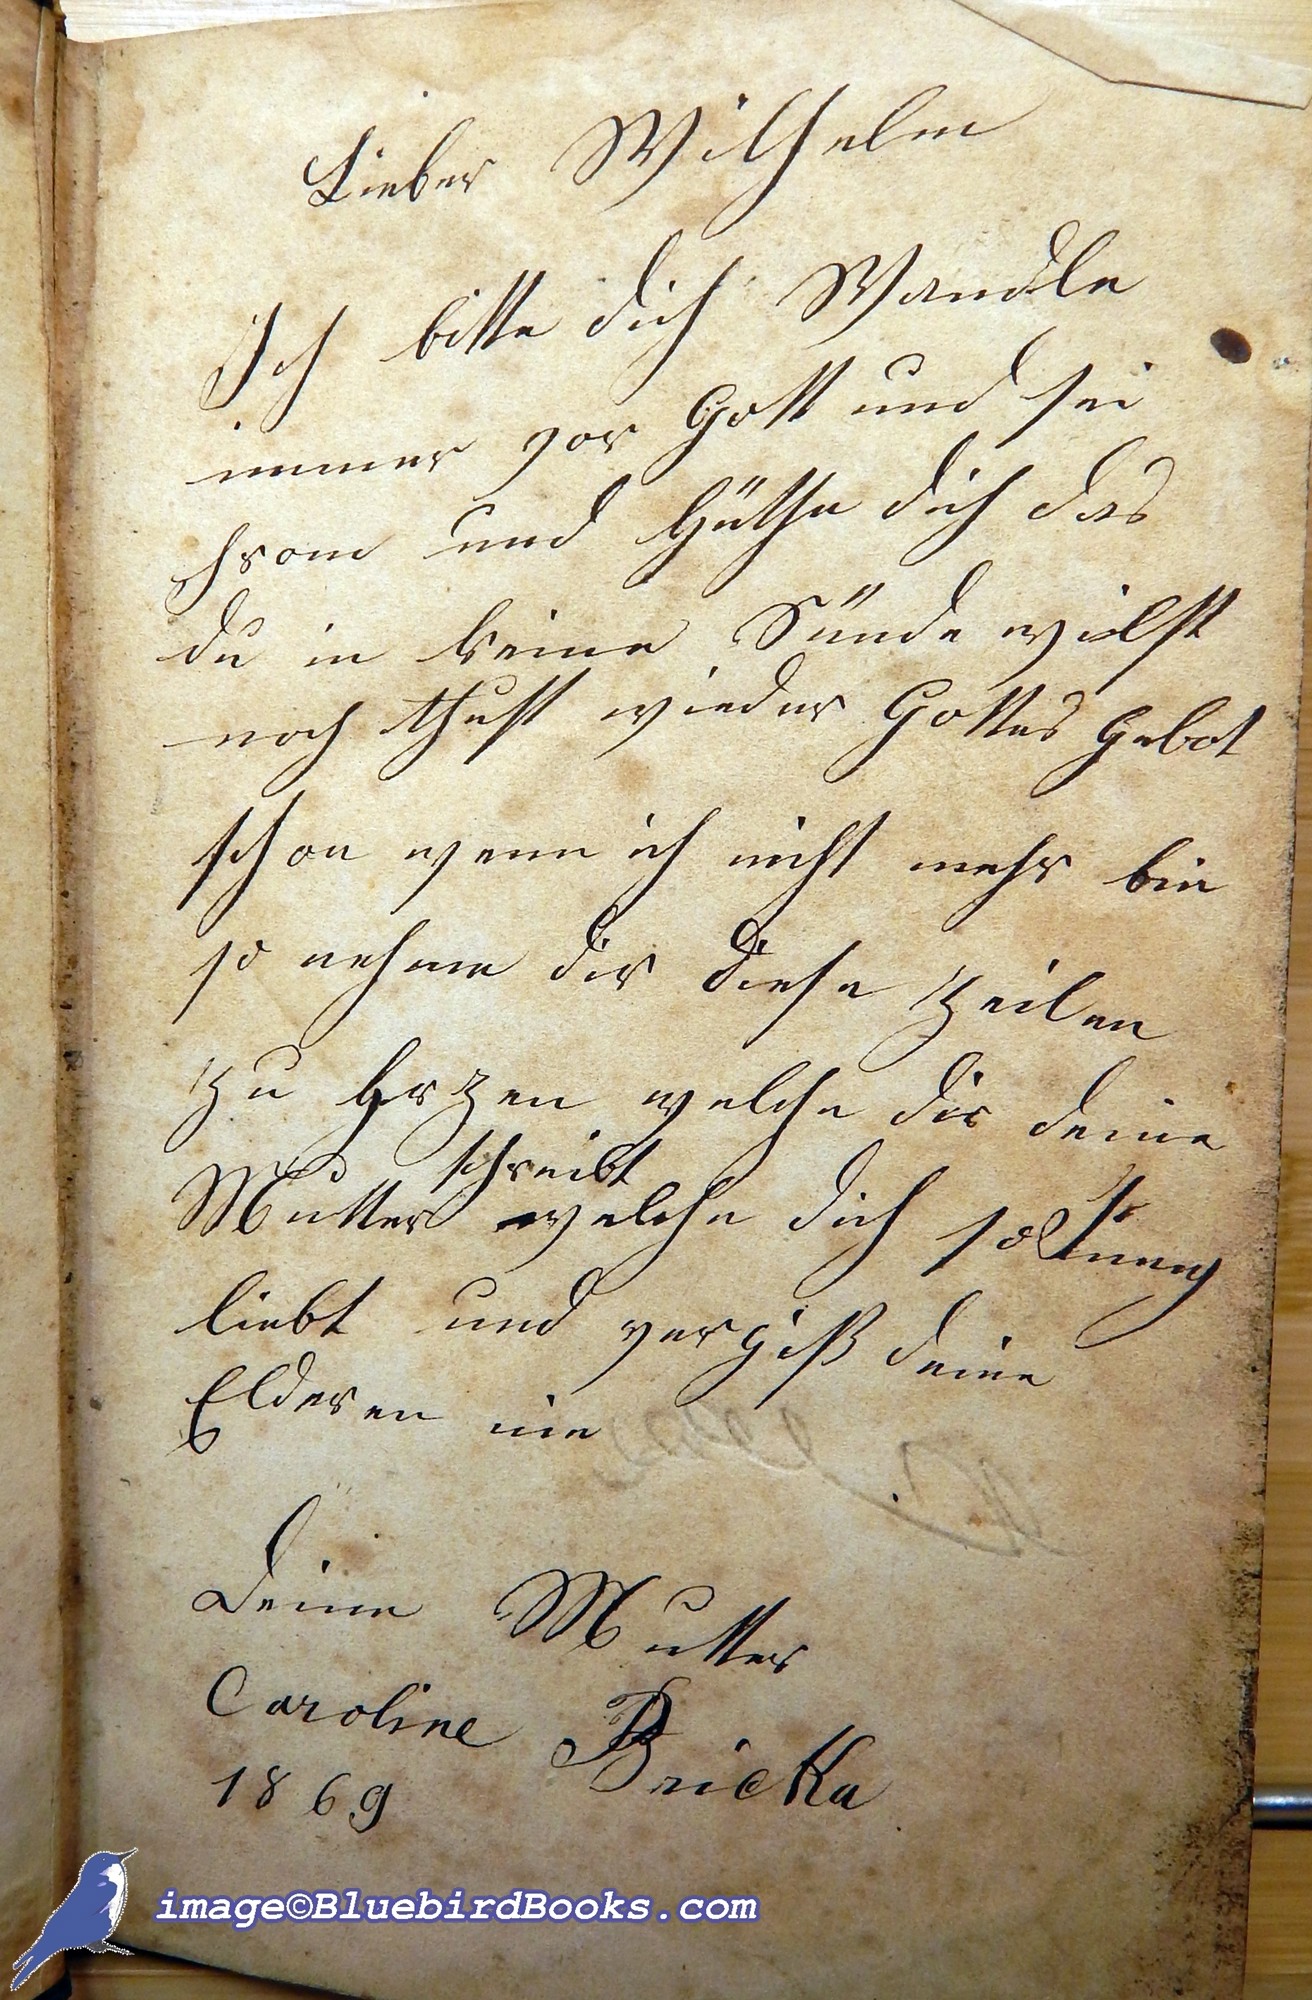 Lieber Wilhelm
Ich bitte dich Wandle
immer vor Gott und sei
from und Hüthe dich das
du in keine Sünde wilst
noch thust wieder Gottes Gebot
schon wenn ich nicht mehr bin
so nehme dir diese Zeilen
zu Herzen welche dir deine
schreibt
Mutter welche dich so
liebt und vergiß deine
Elderen nie
Deine Mutter
Caroline Bricka
1869
image©BluebirdBooks.com